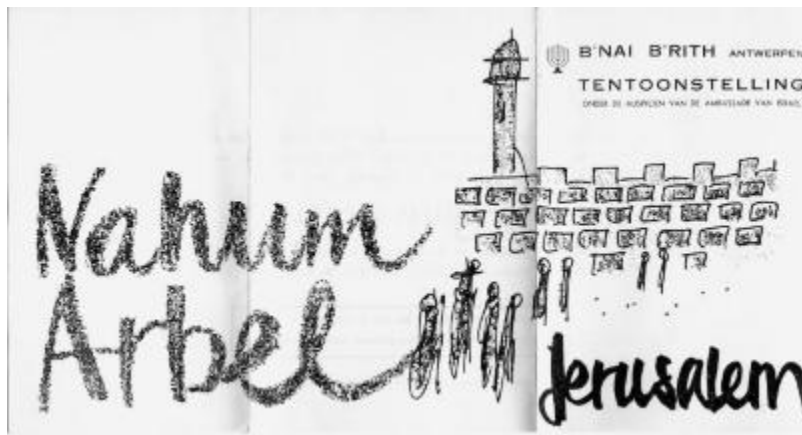 B'NAI B'RITH ANTWERPEN
TENTOONSTELLING
ONDER DE AUSPICIEN VAN DE AMBASSADE VAN ISRAEL
Nahum
Arbel
Jerusalem